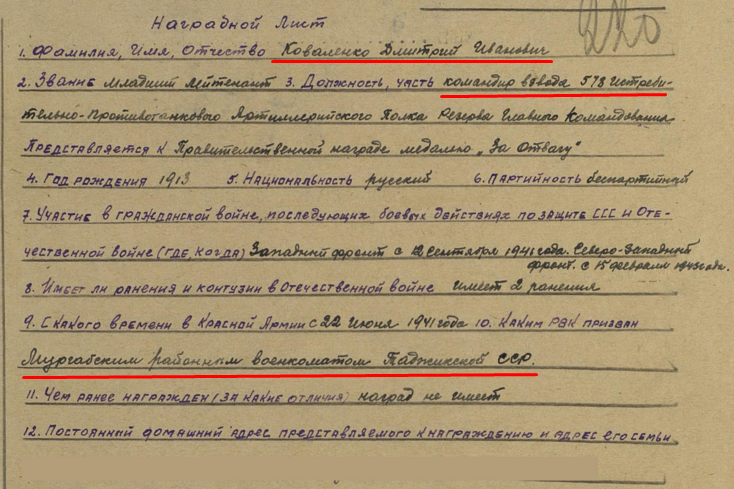 Наградной Лист
220
1. Фамилия, Имя, Отчество Коваленко Дмитрий Иванович
2. Звание младший лейтенант 3. Должность, часть командир взвода 578 истреби-
тельно-противотанкового Артиллерийского Полка Резерва Главного Командования
Представляется к Правительственной награде медалью „За Отвагу"
4. Год рождения 1913 5. Национальность русский 6. Партийность беспартийный
7. Участие в гражданской войне, последующих боевых действиях по защите ССС и Оте-
чественной войне (где, когда) Западный фронт с 12 сентября 1941 года. Северо-Западный
фронт. с 15 февраля 1943 года.
8. Имеет ли ранения и контузии в Отечественной войне имеет 2 ранения
9. С какого времени в Красной Армии с 22 июня 1941 года 10. Каким РВК призван
Мургабским районным военкоматом Таджикской ССР.
11. Чем ранее награжден (за какие отличия) наград не имеет
12. Постоянный домашний адрес представляемого к награждению и адрес его семьи